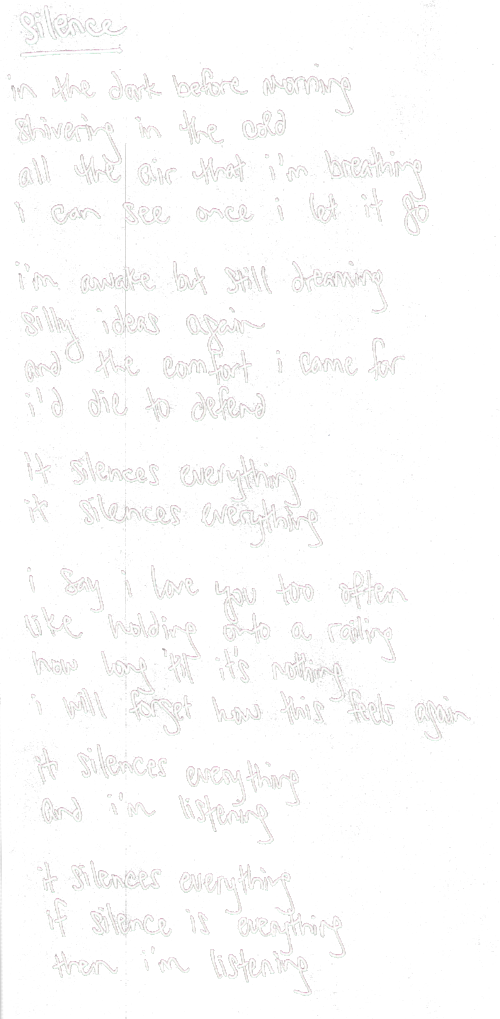 silence
in the dark before morning
shivering in the cold
all the air that i'm breathing
i can see once i let it go
i'm awake but still dreaming
silly ideas again
and the comfort i came for
i'd die to defend
it silences everything
it silences everything
i say i love you too often
like holding onto a railing
how long 'til it's nothing
i will forget how this feels again
it silences everything
and i'm listening
it silences everything
if silence is everything
then i'm listening